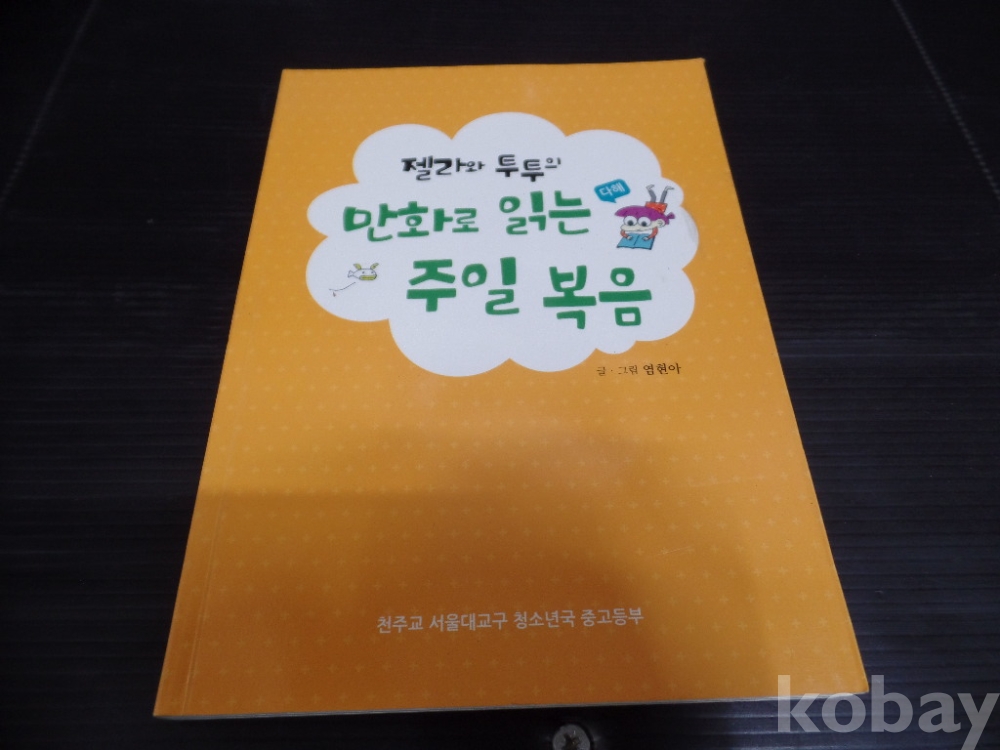 젤라와 투투의
만화로 읽는
다해
주일 복음
글·그림 염현아
천주교 서울대교구 청소년국 중고등부
kobay